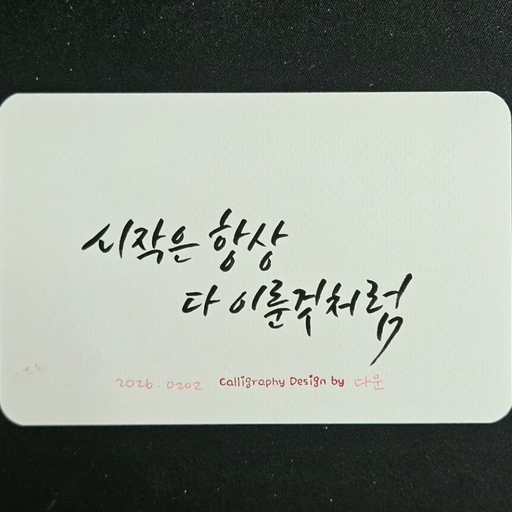 시작은 항상
다 이룬것처럼
2026.0202 Calligraphy Design by 다운